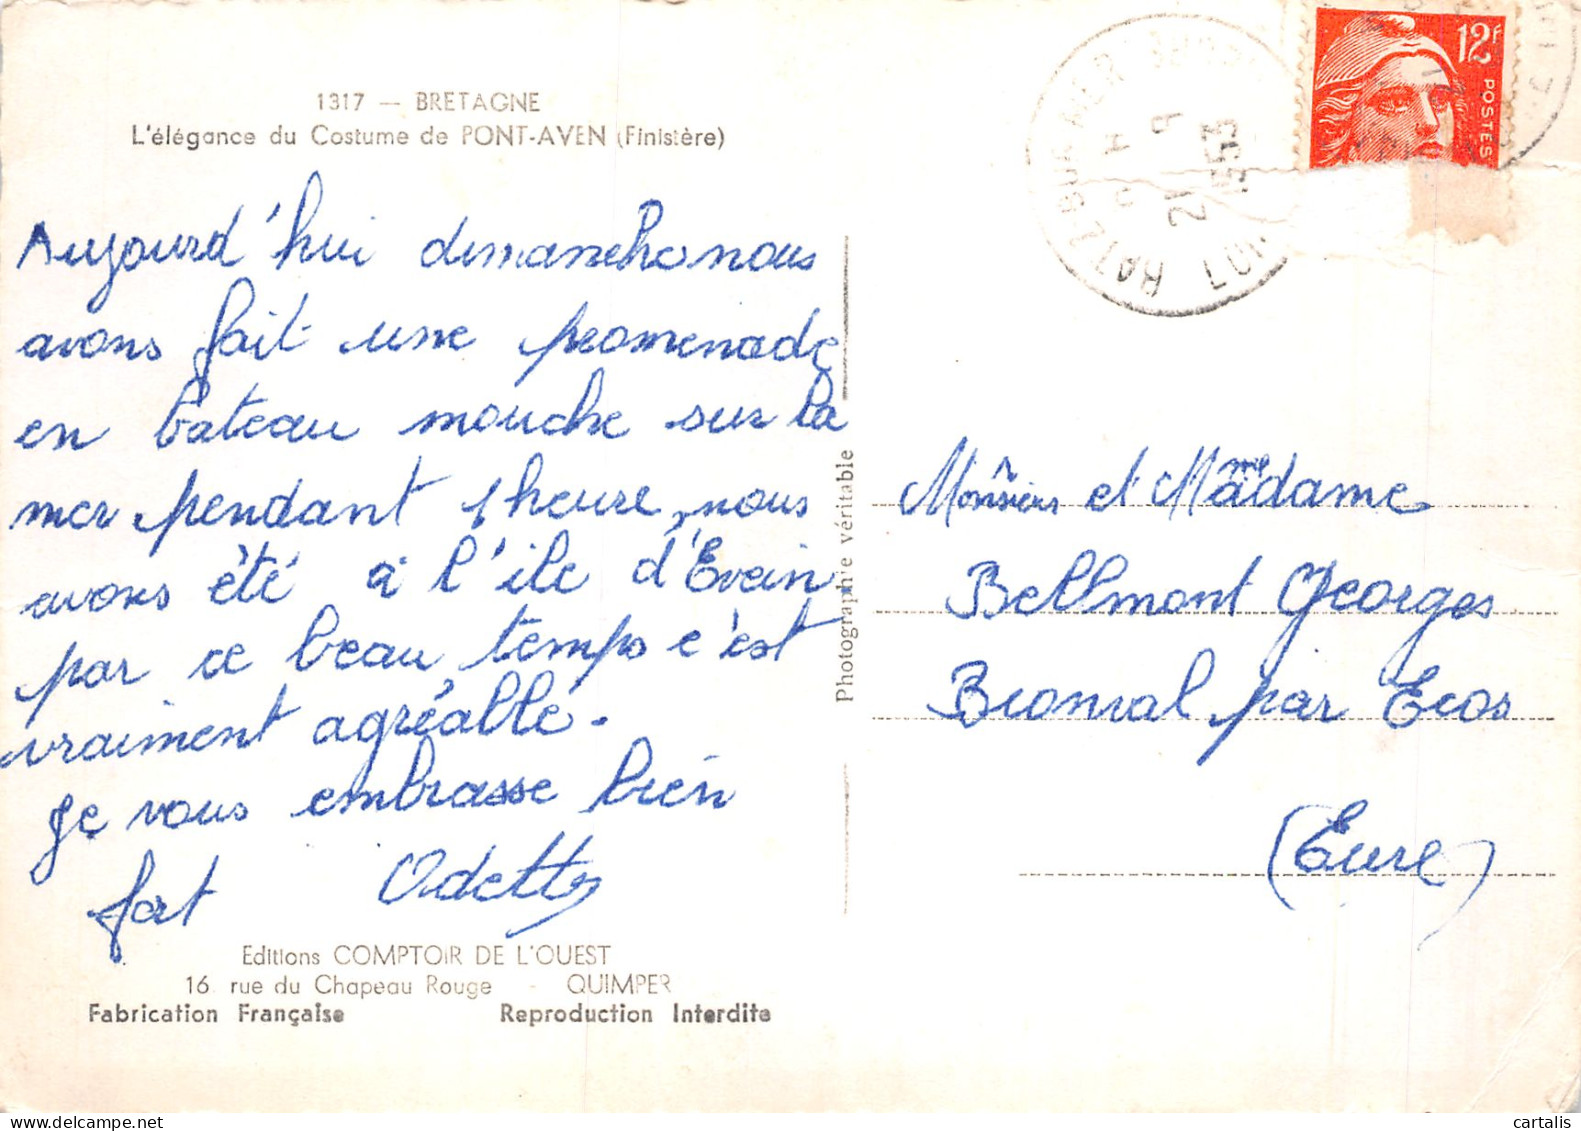 1317 — BRETAGNE
L'élégance du Costume de PONT-AVEN (Finistère)
Aujourd'hui dimanche nous
avons fait une promenade
en bateau mouche sur la
mer pendant 1 heure, nous
avons été à l'ile d'Evein
par ce beau temps c'est
vraiment agréable.
Je vous embrasse bien
fort Odette
Editions COMPTOIR DE L'OUEST
16 rue du Chapeau Rouge - QUIMPER
Fabrication Française Reproduction Interdite
Photographie véritable
BATZ SUR MER
21 9
1953
12F
POSTES
Monsieur et Madame
Bellmont Georges
Bionval par Ecos
(Eure)
cartalis